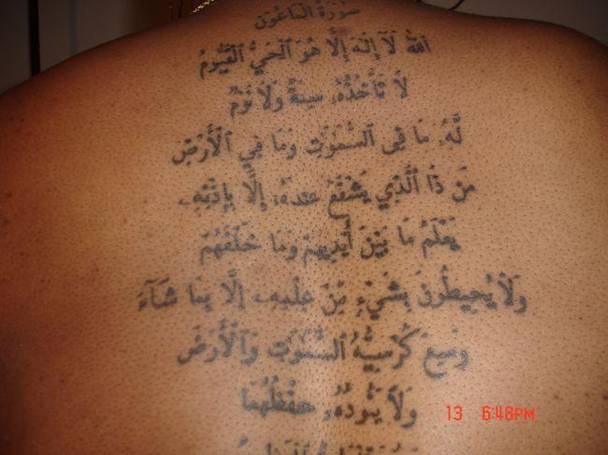 سورة الماعون
ٱللَّهُ لَآ إِلَٰهَ إِلَّا هُوَ ٱلْحَيُّ ٱلْقَيُّومُ
لَا تَأْخُذُهُۥ سِنَةٌ وَلَا نَوْمٌ
لَّهُۥ مَا فِى ٱلسَّمَٰوَٰتِ وَمَا فِي ٱلْأَرْضِ
مَن ذَا ٱلَّذِي يَشْفَعُ عِندَهُۥ إِلَّا بِإِذْنِهِۦ
يَعْلَمُ مَا بَيْنَ أَيْدِيهِمْ وَمَا خَلْفَهُمْ
وَلَا يُحِيطُونَ بِشَيْءٍ مِّنْ عِلْمِهِۦ إِلَّا بِمَا شَآءَ
وَسِعَ كُرْسِيُّهُ ٱلسَّمَٰوَٰتِ وَٱلْأَرْضَ
وَلَا يَـُٔودُهُۥ حِفْظُهُمَا
13 6:48PM